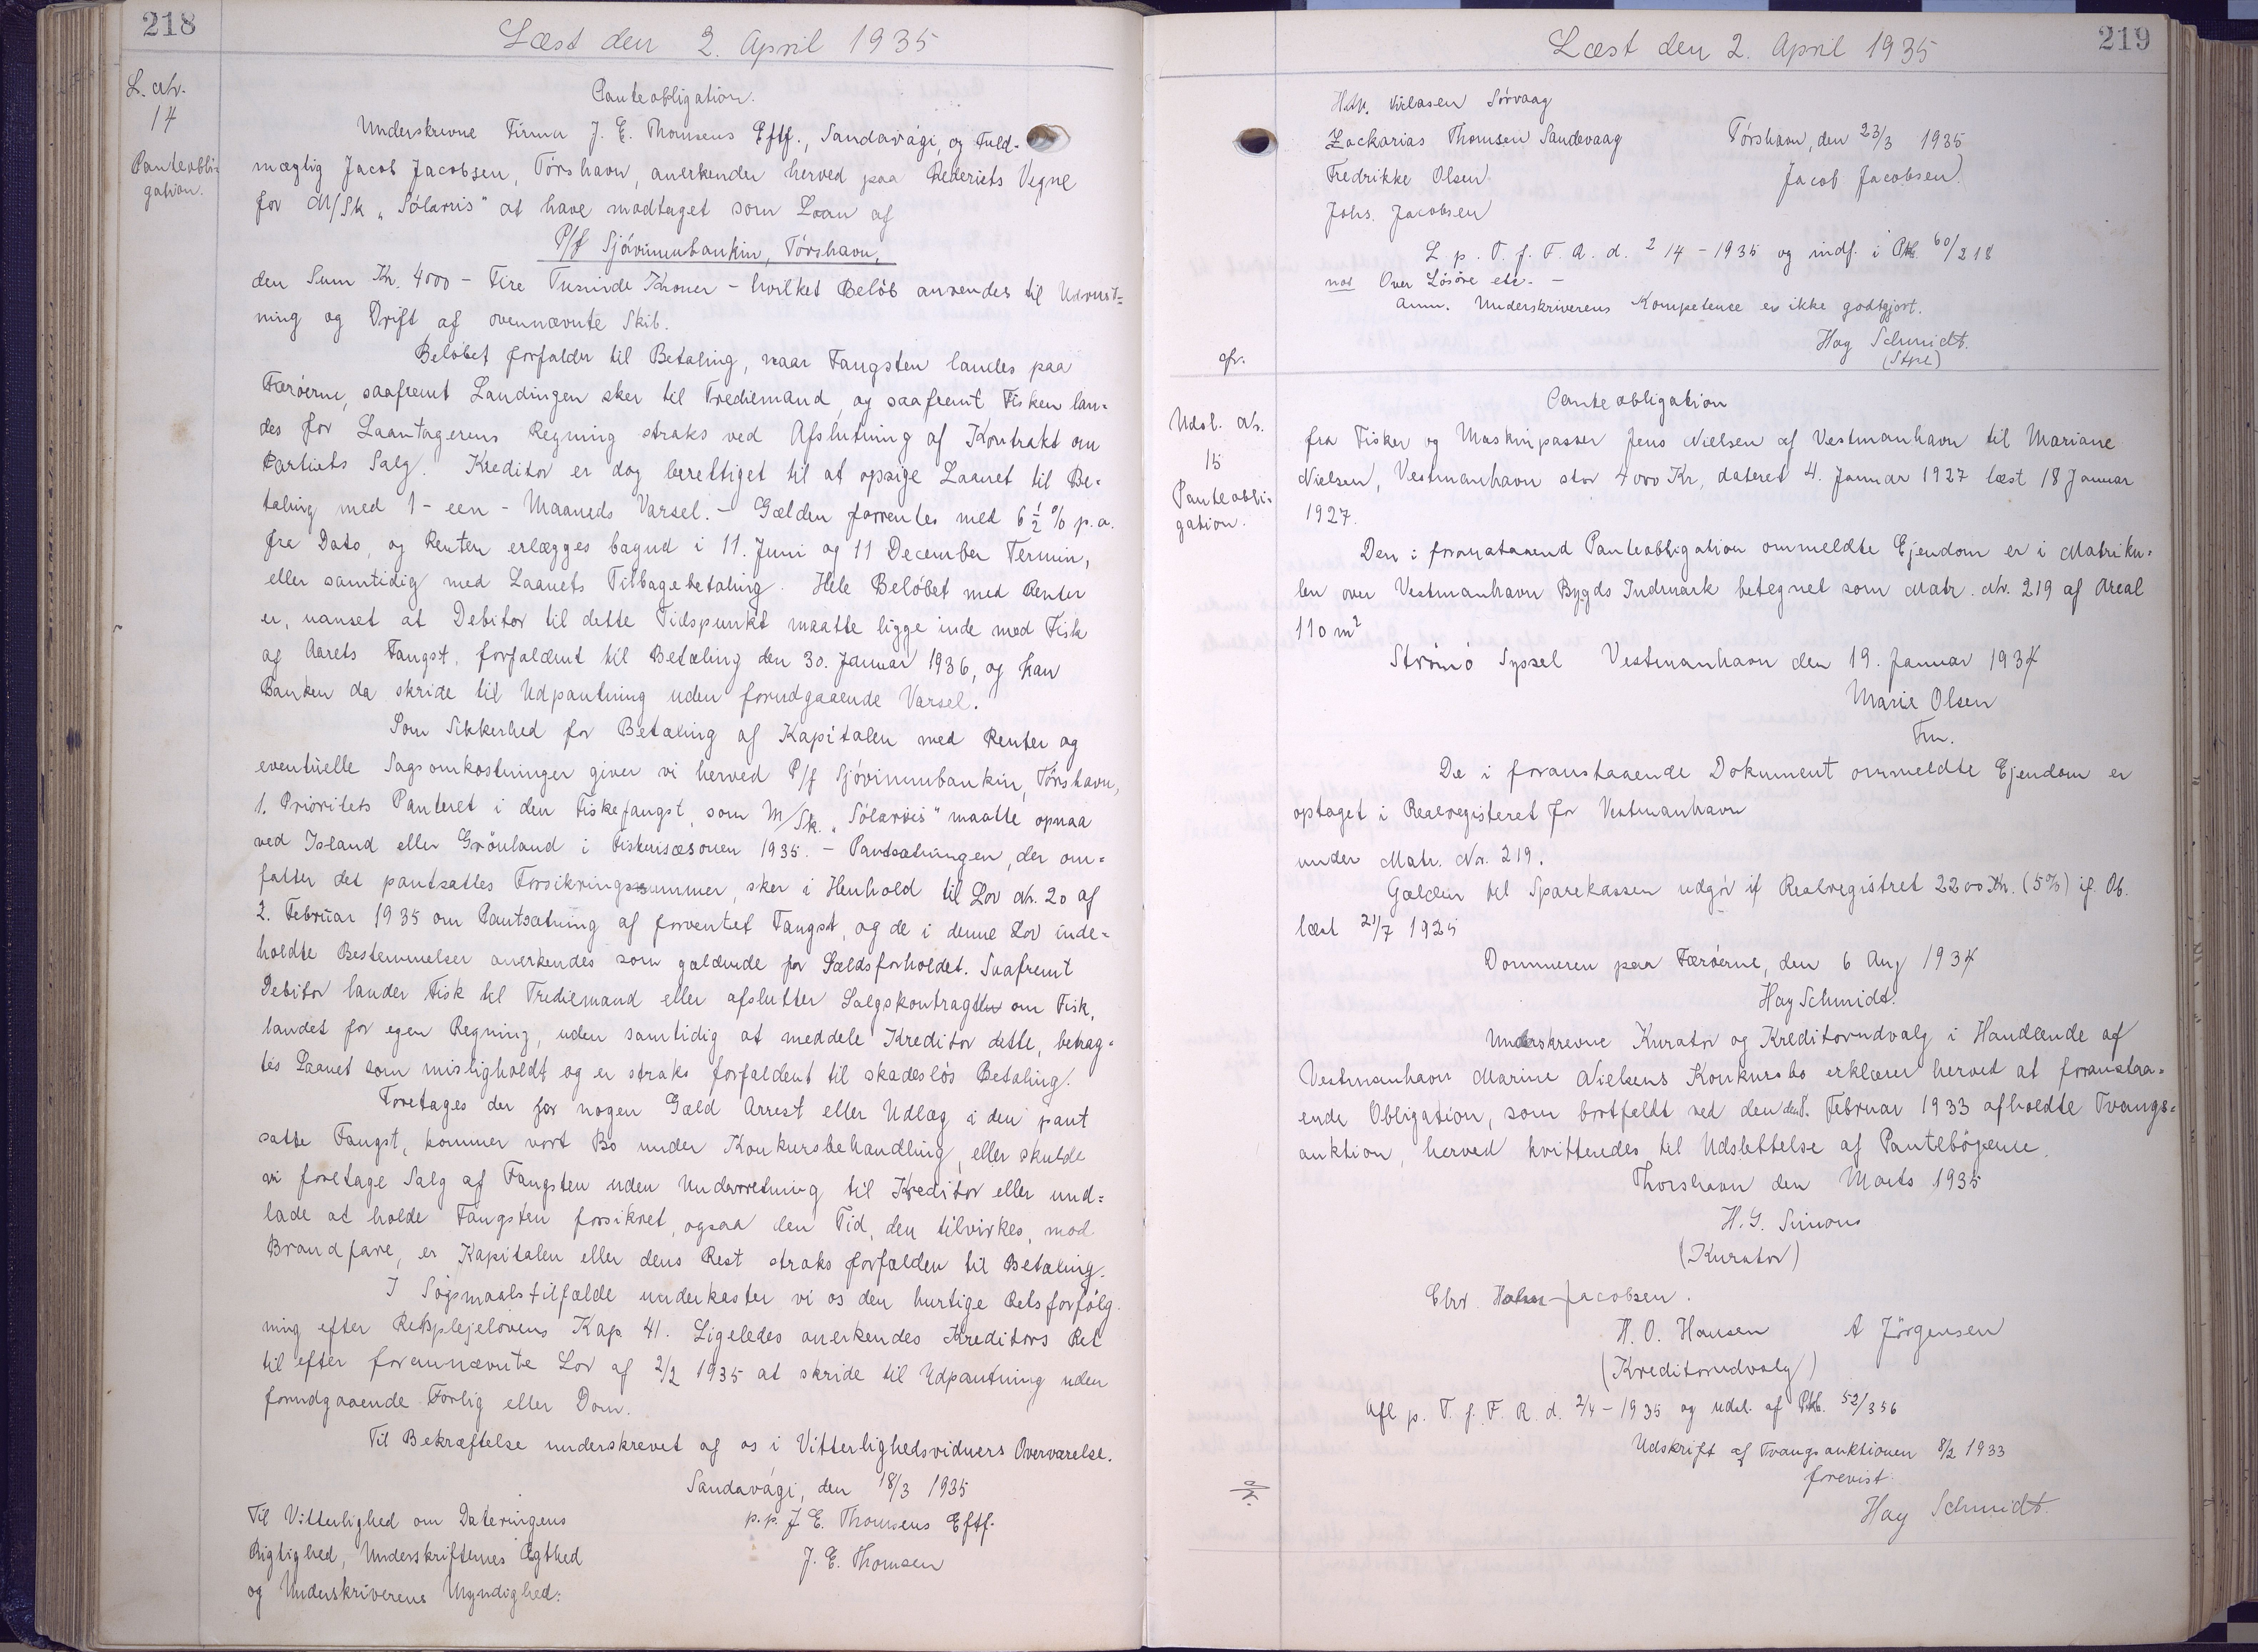 218
Læst den 2. April 1935
L. Nr.
14
Panteobli-
gation.
Panteobligation.
Underskrevne Firma J. E. Thomsens Eftf., Sandavági, og Fuld-
mægtig Jacob Jacobsen, Tórshavn, anerkender herved paa Rederiets Vegne
for M/Sk „Sólarris" at have modtaget som Laan af
P/f Sjóvinnubankin, Tórshavn,
den Sum Kr. 4000 - Fire Tusinde Kroner - hvilket Beløb anvendes til Udrust=
ning og Drift af ovennævnte Skib.
Beløbet forfalder til Betaling, naar Fangsten landes paa
Færøerne, saafremt Landingen sker til Trediemand, og saafremt Fisken lan=
des for Laantagerens Regning straks ved Afslutning af Kontrakt om
Partiets Salg. Kreditor er dog berettiget til at opsige Laanet til Be=
taling med 1 - een - Maaneds Varsel. - Gælden forrentes med 6 1/2 % p.a.
fra Dato, og Renten erlægges bagud i 11. Juni og 11 December Termin,
eller samtidig med Laanets Tilbagebetaling. Hele Beløbet med Renter
er, uanset at Debitor til dette Tidspunkt maatte ligge inde med Fisk
af Aarets Fangst, forfaldent til Betaling den 30. Januar 1936, og kan
Banken da skride til Udpantning uden forudgaaende Varsel.
Som Sikkerhed for Betaling af Kapitalen med Renter og
eventuelle Sagsomkostninger giver vi herved P/f Sjóvinnubankin, Tórshavn,
1. Prioritets Panteret i den Fiskefangst, som M/Sk. „Sólarris" maatte opnaa
ved Island eller Grønland i Fiskerisæsonen 1935. - Pantsætningen, der om=
fatter det pantsattes Forsikringssummer, sker i Henhold til Lov Nr. 20 af
2. Februar 1935 om Pantsætning af forventet Fangst, og de i denne Lov inde=
holdte Bestemmelser anerkendes som gældende for Gældsforholdet. Saafremt
Debitor lander Fisk til Trediemand eller afslutter Salgskontragter om Fisk,
landet for egen Regning, uden samtidig at meddele Kreditor dette, betrag=
tes Laanet som misligholdt og er straks forfaldent til skadesløs Betaling.
Foretages der for nogen Gæld Arrest eller Udlæg i den pant
satte Fangst, kommer vort Bo under Konkursbehandling, eller skulde
vi foretage Salg af Fangsten uden Underretning til Kreditor eller und=
lade at holde Fangsten forsikret, ogsaa den Tid, den tilvirkes, mod
Brandfare, er Kapitalen eller dens Rest straks forfalden til Betaling.
I Søgsmaalstilfælde underkaster vi os den hurtige Retsforfølg
ning efter Retsplejelovens Kap 41. Ligeledes anerkendes Kreditors Ret
til efter forannævnte Lov af 2/2 1935 at skride til Udpantning uden
forudgaaende Forlig eller Dom.
Til Bekræftelse underskrevet af os i Vitterlighedsvidners Overværelse.
Sandavági, den 18/3 1935
Til Vitterlighed om Dateringens
p.p. J. E. Thomsens Eftf.
Rigtighed, Underskrifternes Ægthed
J. E. Thomsen
og Underskriverens Myndighed:
219
Læst den 2. April 1935
Sørvaag
Zackarias Thomsen Sandevaag
Tórshavn, den 23/3 1935
Fredrikke Olsen
Jacob Jacobsen
Johs. Jacobsen
L. p. T. f. F. A. d. 2/4 - 1935 og indf. i Ptb. 60/218
not Over Løsøre etc. -
Anm. Underskriverens Kompetence er ikke godtgjort.
Hay Schmidt.
(Stpl)
gfr.
Udsl. Nr.
15
Panteobli=
gation.
Panteobligation
fra Fisker og Maskinpasser Jens Nielsen af Vestmanhavn til Mariane
Nielsen, Vestmanhavn stor 4000 Kr, dateret 4. Januar 1927 læst 18 Januar
1927.
Den i foranstaaend Panteobligation ommeldte Ejendom er i Matriku=
len over Vestmanhavn Bygds Indmark betegnet som Matr. Nr. 219 af Areal
110 m²
Strømø Syssel Vestmanhavn den 19. Januar 1934
Marie Olsen
Fm.
De i foranstaaende Dokument ommeldte Ejendom er
optaget i Realregisteret for Vestmanhavn
under Matr. Nr. 219.
Gælden til Sparekassen udgør if Realregistret 2200 Kr. (5%) if. Ob.
læst 21/7 1925
Dommeren paa Færøerne, den 6 Aug 1934
Hay Schmidt.
Underskrevne Kurator og Kreditorudvalg i Handlende af
Vestmanhavn Marine Nielsens Konkursbo erklærer herved at foranstaa=
ende Obligation, som bortfaldt ved den den 8. Februar 1933 afholdte Tvangs=
auktion, herved kvitteredes til Udslettelse af Pantebøgerne.
Thorshavn den Marts 1935
H. G. Simons
(Kurator)
Chr. Holm-Jacobsen.
H. O. Hansen A Jørgensen
(Kreditorudvalg)
Afl p. T. f. F. R. d. 2/4 - 1935 og udsl. af Ptb. 52/356
Udskrift af Tvangsauktionen 8/2 1933
forevist.
Hay Schmidt.